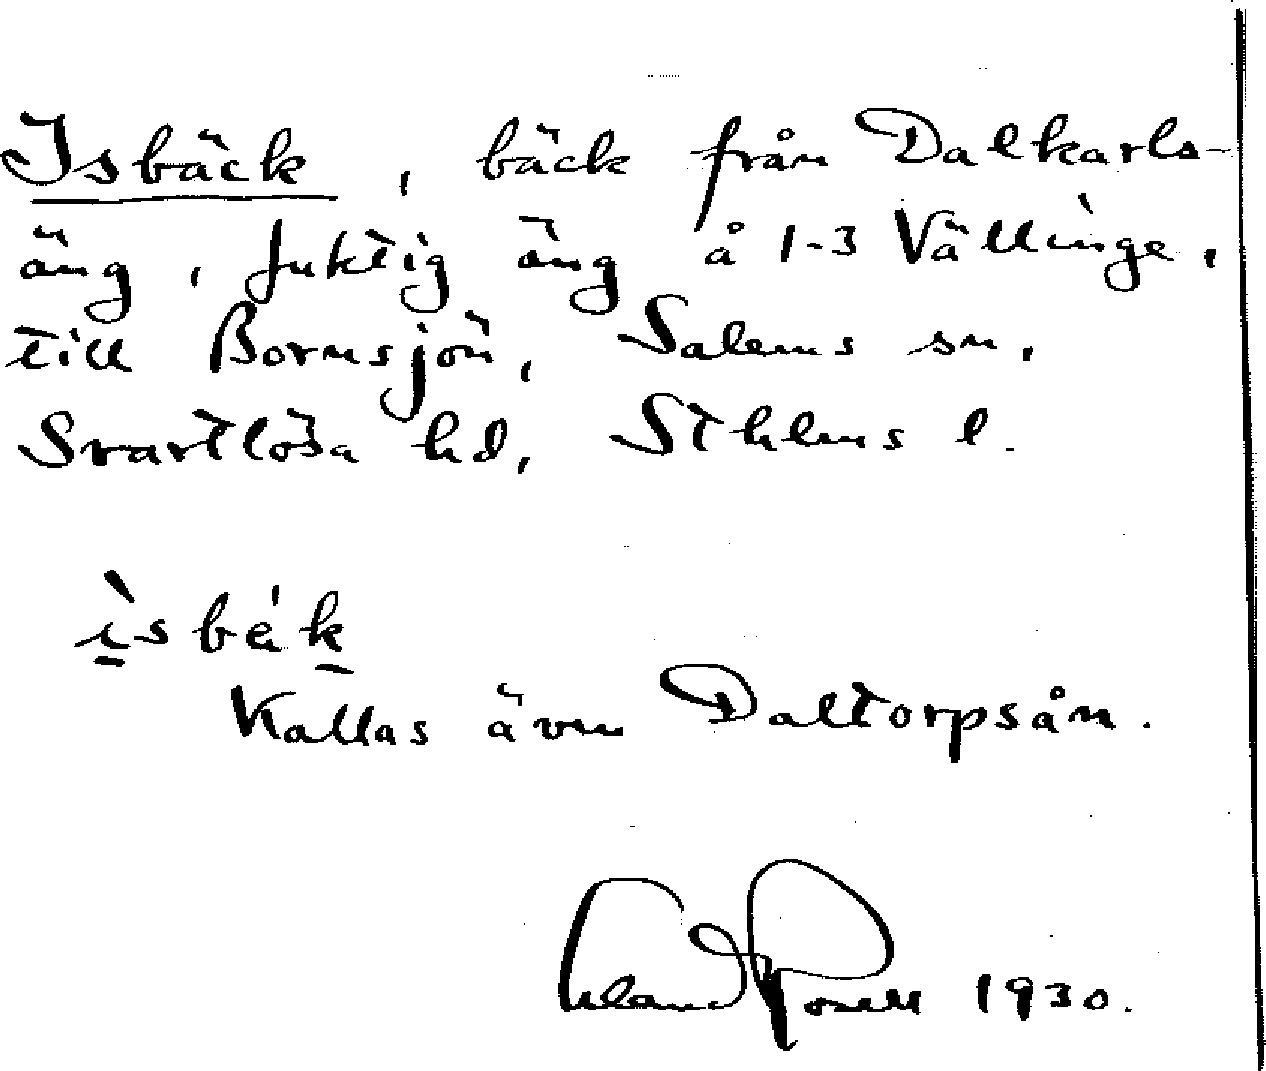 Isbäck, bäck från Dalkarls-
äng, fuktig äng å 1-3 Vällinge,
till Bornsjön, Salems sn,
Svartlösa hd, Sthlms l.
ìsbá̈k
Kallas även Daltorpsån.
Erland Rosell 1930.